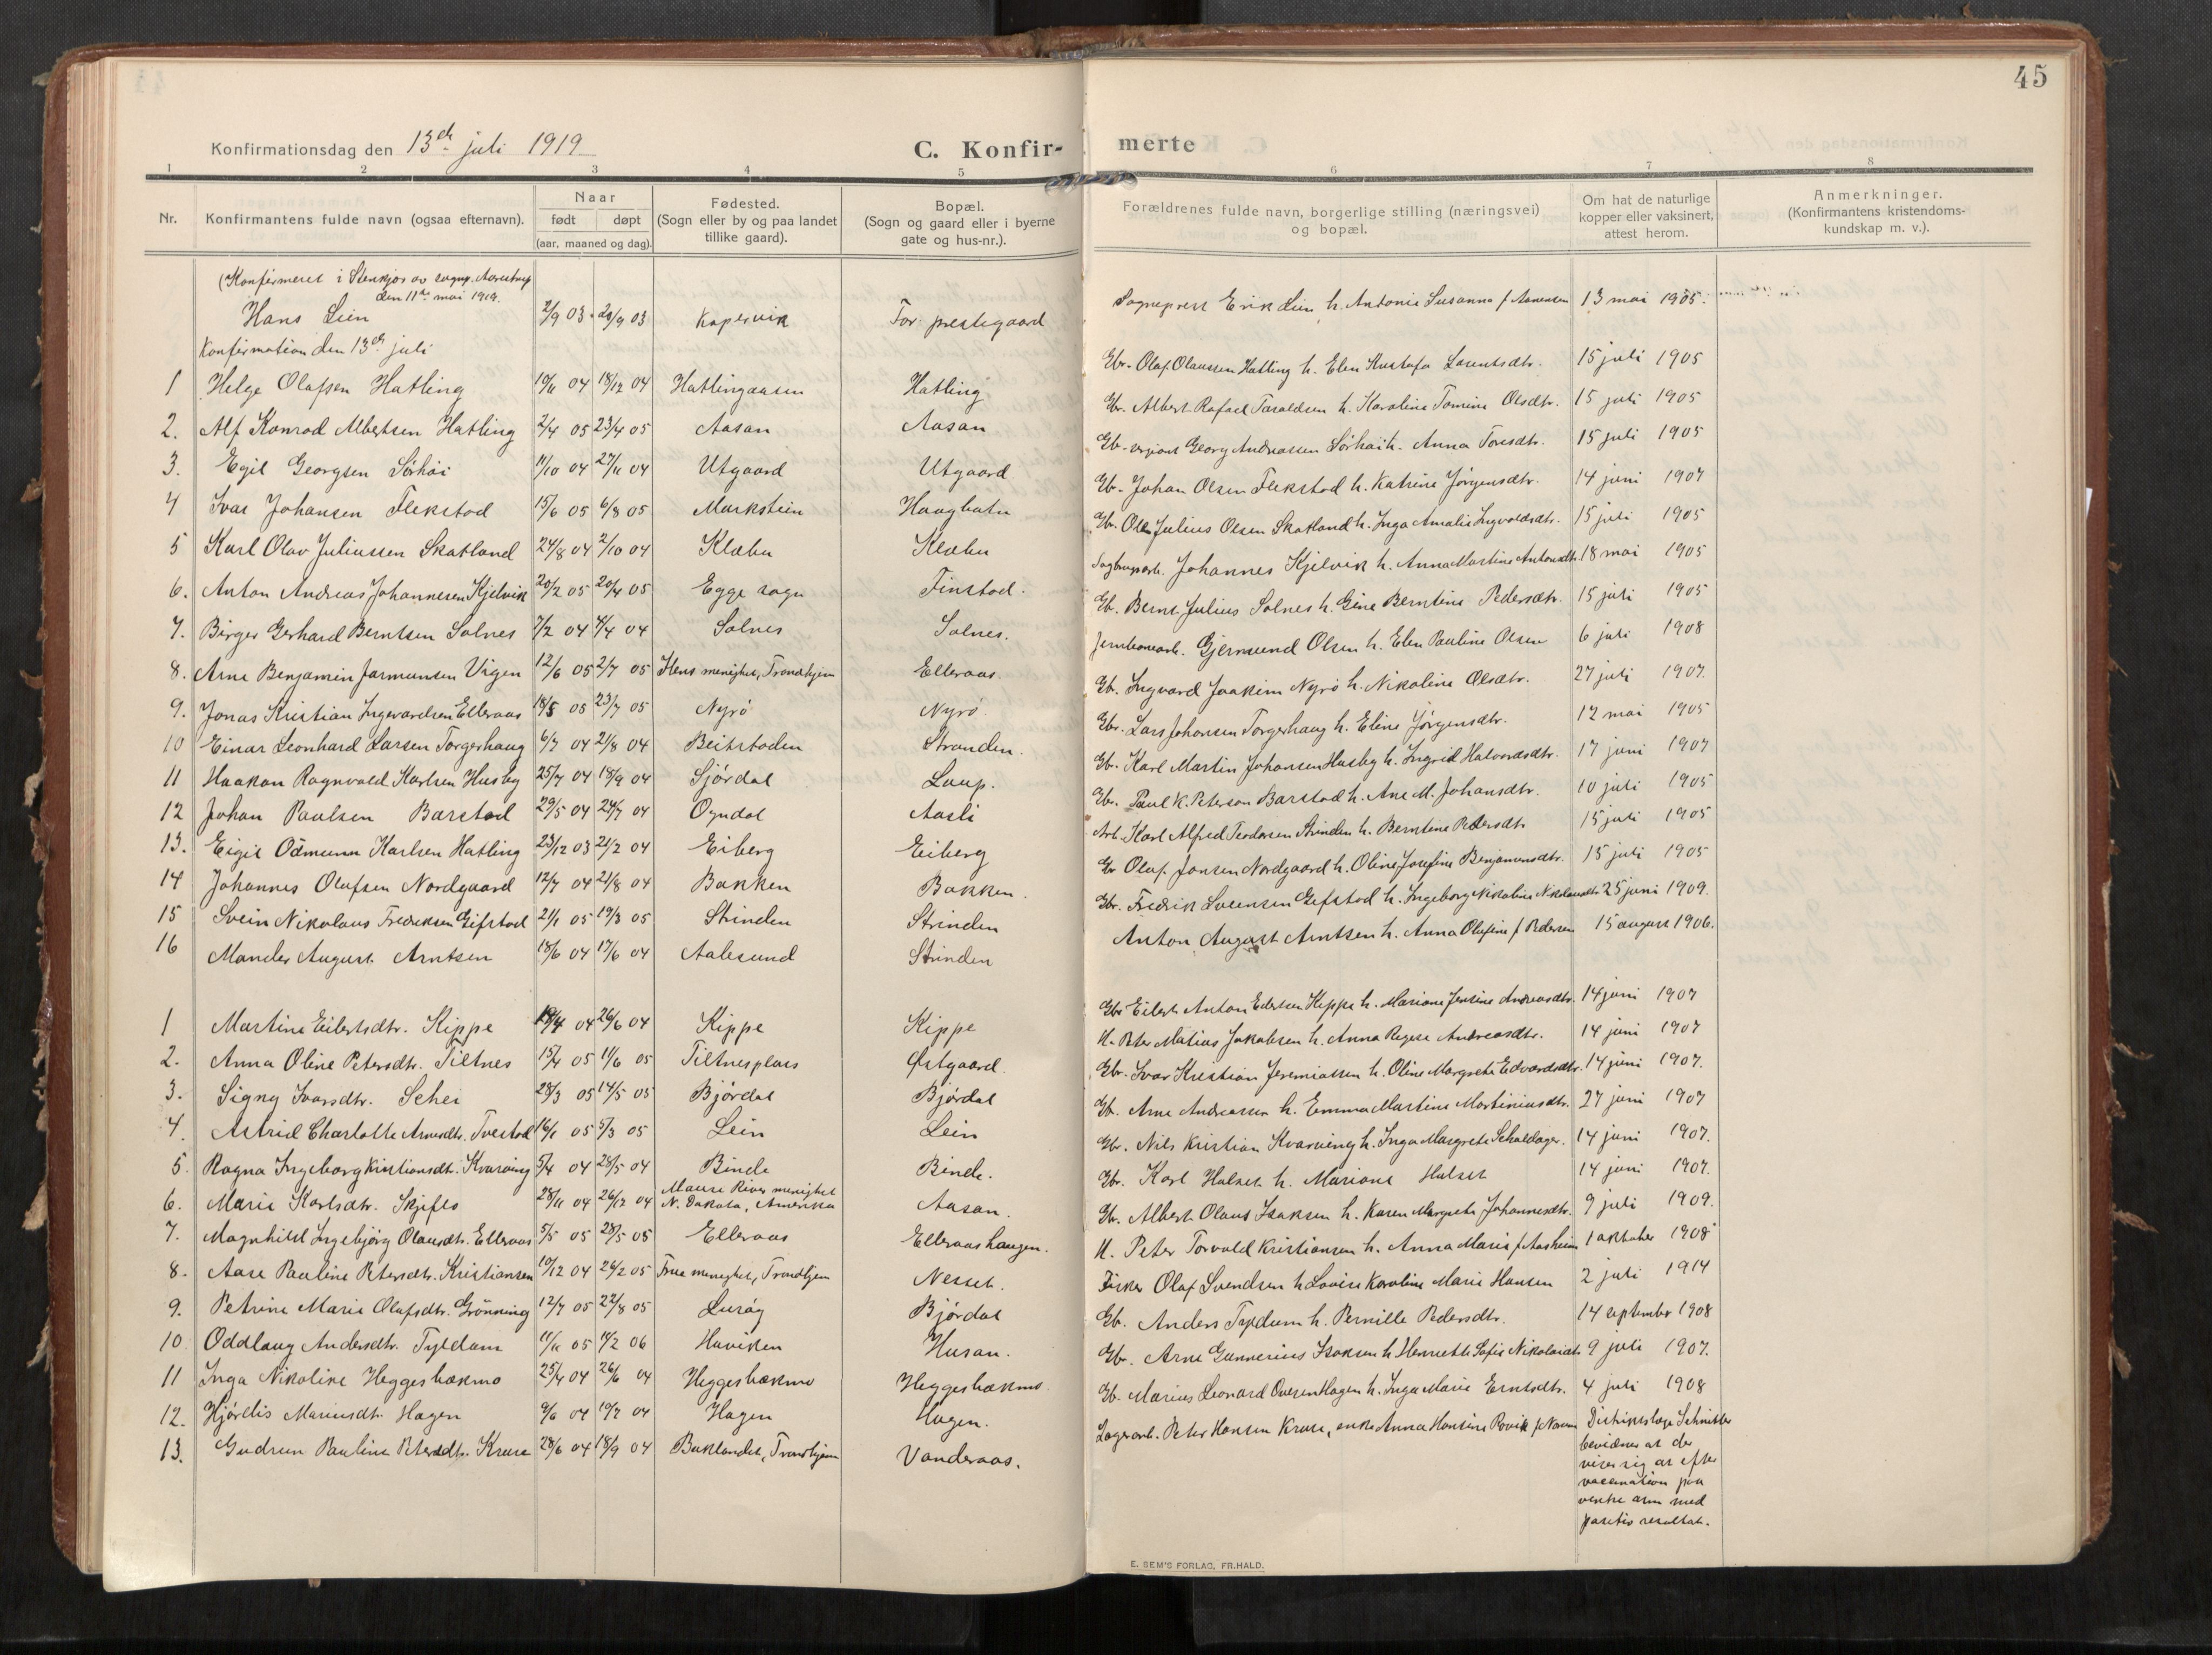 45
Konfirmationsdag den 13de juli 1919
C. Konfir-
merte
1 2 3 4 5 6 7 8
Nr.
Konfirmantens fulde navn (ogsaa efternavn).
Naar
født døpt
(aar, maaned og dag).
Fødested.
(Sogn eller by og paa landet
tillike gaard).
Bopæl.
(Sogn og gaard eller i byerne
gate og hus-nr.).
Forældrenes fulde navn, borgerlige stilling (næringsvei)
og bopæl.
Om hat de naturlige
kopper eller vaksinert,
attest herom.
Anmerkninger.
(Konfirmantens kristendoms-
kundskap m. v.).
(Konfirmeret i Stenkjær av sognp. Aarestrup
den 11te mai 1919.
Hans Lien 2/9 03 20/9 03 Kopervik For prestegaard Sogneprest Erik Lien h. Antonie Susanna f. Aanensen 13 mai 1905.
Konfirmation den 13de juli
1 Helge Olafsen Hatling 19/11 04 18/12 04 Hatlingaasen Hatling Gbr. Olaf Olaussen Hatling h. Elen Gustafa Lorentsdtr. 15 juli 1905
2. Alf Konrad Albertsen Hatling 2/4 05 23/4 05 Aasan Aasan Gbr. Albert Rafael Taraldsen h. Karoline Tomine Olsdtr. 15 juli 1905
3. Egil Georgsen Sørhøi 11/10 04 27/11 04 Utgaard Utgaard Georg Andreassen Sørhøi h. Anna Toresdtr. 15 juli 1905
4 Ivar Johansen Flekstad 15/6 05 6/8 05 Markstein Haugbotn Gb. Johan Olsen Flekstad h. Katrine Jørgensdtr. 14 juni 1907
5 Karl Olav Juliussen Skatland 24/8 04 2/10 04 Klæbu Klæbu Gb. Ole Julius Olsen Skatland h. Inga Amalie Ingvaldsdtr. 15 juli 1905
6. Anton Andreas Johannesen Kjelvik 20/2 05 20/4 05 Egge sogn Finstad. Sagbruksarb. Johannes Kjelvik h. Anna Martine Antondtr. 18 mai 1905
7. Birger Gerhard Berntsen Solnes 7/2 04 4/4 04 Solnes Solnes. Gb. Bernt Julius Solnes h. Gine Berntine Pedersdtr. 15 juli 1905
8. Arne Benjamin Jarmundsen Vigen 12/6 05 2/7 05 Ilens menighet, Trondhjem Elleraas. Jernbanearb. Gjermund Olsen h. Elen Pauline Olsen 6 juli 1908
9. Jonas Kristian Ingevardsen Elleraas 18/5 05 23/7 05 Nyrø Nyrø Gb. Ingvard Joakim Nyrø h. Nikoline Olsdtr. 27 juli 1907.
10 Einar Leonhard Larsen Torgerhaug 6/7 04 21/8 04 Beitstaden Stranden. Gbr. Lars Johansen Torgerhaug h. Eline Jørgensdtr. 12 mai 1905
11 Haakon Ragnvald Karlsen Husby 25/7 04 18/9 04 Sjørdal Laup. Gb. Karl Martin Johansen Husby h. Ingrid Halvorsdtr. 17 juni 1907
12 Johan Paulsen Barstad 29/5 04 24/7 04 Ogndal Aasli Gbr. Paul K. Peterson Barstad h. Ane M. Johansdtr. 10 juli 1905
13. Eigil Odmunn Karlsen Hatling 23/12 03 21/2 04 Eiberg Eiberg Arb. Karl Alfred Teodorsen Strinden h. Berntine Pedersdtr 15 juli 1905
14 Johannes Olafsen Nordgaard 12/7 04 21/8 04 Bakken Bakken. Gb. Olaf Jonsen Nordgaard h. Oline Josefine Benjaminsdtr. 15 juli 1905
15 Svein Nikolaus Fredriksen Gifstad 21/1 05 19/3 05 Strinden Strinden Gbr. Fredrik Lorensen Gifstad h. Ingeborg Nikoline Nikolaisdtr 25 juni 1909.
16 Mander August Arntsen 18/6 04 17/6 04 Aalesund Strinden Anton August Arntsen h. Anna Olufine f. Pedersen 15 august 1906.
1 Martine Eilertsdtr. Kippe 19/4 04 26/6 04 Kippe Kippe Gbr Eilert Anton Edersen Kippe h. Mariane Jensine Andreasdtr. 14 juni 1907
2. Anna Oline Petersdtr. Tiltnes 15/4 05 11/6 05 Tiltnesplass Østgaard H. Peter Matius Jakobsen h. Anna Regese Andreasdtr. 14 juni 1907
3. Signy Ivarsdtr. Schei 28/3 05 14/5 05 Bjørdal Bjørdal Gbr. Ivar Kristian Jeremiassen h. Oline Margrete Edvardsdtr. 14 juni 1907.
4. Astrid Charlotte Arnesdtr. Tvestad 16/1 05 5/3 05 Lein Lein Gb. Arne Andreassen h. Emma Martine Martiniusdtr. 27 juni 1907
5. Ragna Ingeborg Kristiansdt. Kvarving 5/4 04 25/5 04 Binde Binde. Gbr. Nils Kristian Kvarving h. Inga Margrete Schaldager. 14 juni 1907.
6. Marie Karlsdtr. Skjefte 28/11 04 26/12 04 Mause River menighet
N. Dakota, Amerika Aasan. Gbr. Karl Halset h. Mariane Halset 14 juni 1907.
7. Magnhild Ingebjørg Olausdtr. Elleraas 5/5 05 28/5 05 Elleraas Elleraashaugen. Gbr. Albert Olaus Isaksen h. Karen Margrete Johannesdtr. 9 juli 1909.
8. Aase Pauline Petersdtr. Kristiansen 10/12 04 26/2 05 Frue menighet, Trondhjem Nesset. H. Peter Torvald Kristiansen h. Anna Maria f. Aasheim 1 oktober 1908
9. Petrine Marie Olafsdtr. Grønning 12/7 05 22/8 05 Lurøy Bjørdal Fisker Olaf Svendsen h Lovise Karoline Marie Hansen 2 juli 1914
10. Oddlaug Andersdtr. Tyldum 11/11 05 11/2 06 Haviken Husan. Gb. Anders Tyldum h. Pernille Pedersdtr. 14 september 1908
11 Inga Nikoline Heggesbækmo 25/4 04 26/6 04 Heggesbækmo Heggesbækmo Gb. Arne Gunnerius Isaksen h Henriette Sofie Nikolaidtr 9 juli 1907.
12. Hjørdis Mariusdt. Hagen 9/6 04 19/7 04 Hagen Hagen. Gb. Marius Leonard Ovesen Hagen h. Inga Marie Erntsdtr. 4 juli 1908
13. Gudrun Pauline Petersdtr. Kruse 28/6 04 18/9 04 Baklandet, Trondhjem Vanderaas. Lagerarb. Peter Hansen Kruse, enke Anna Hansine Rovik f. Naum Distriktslæge Schnitler
bevidner at der
viser sig at efter
vaccination paa
venstre arm med
positiv resultat.
E. SEM'S FORLAG, FR.HALD.